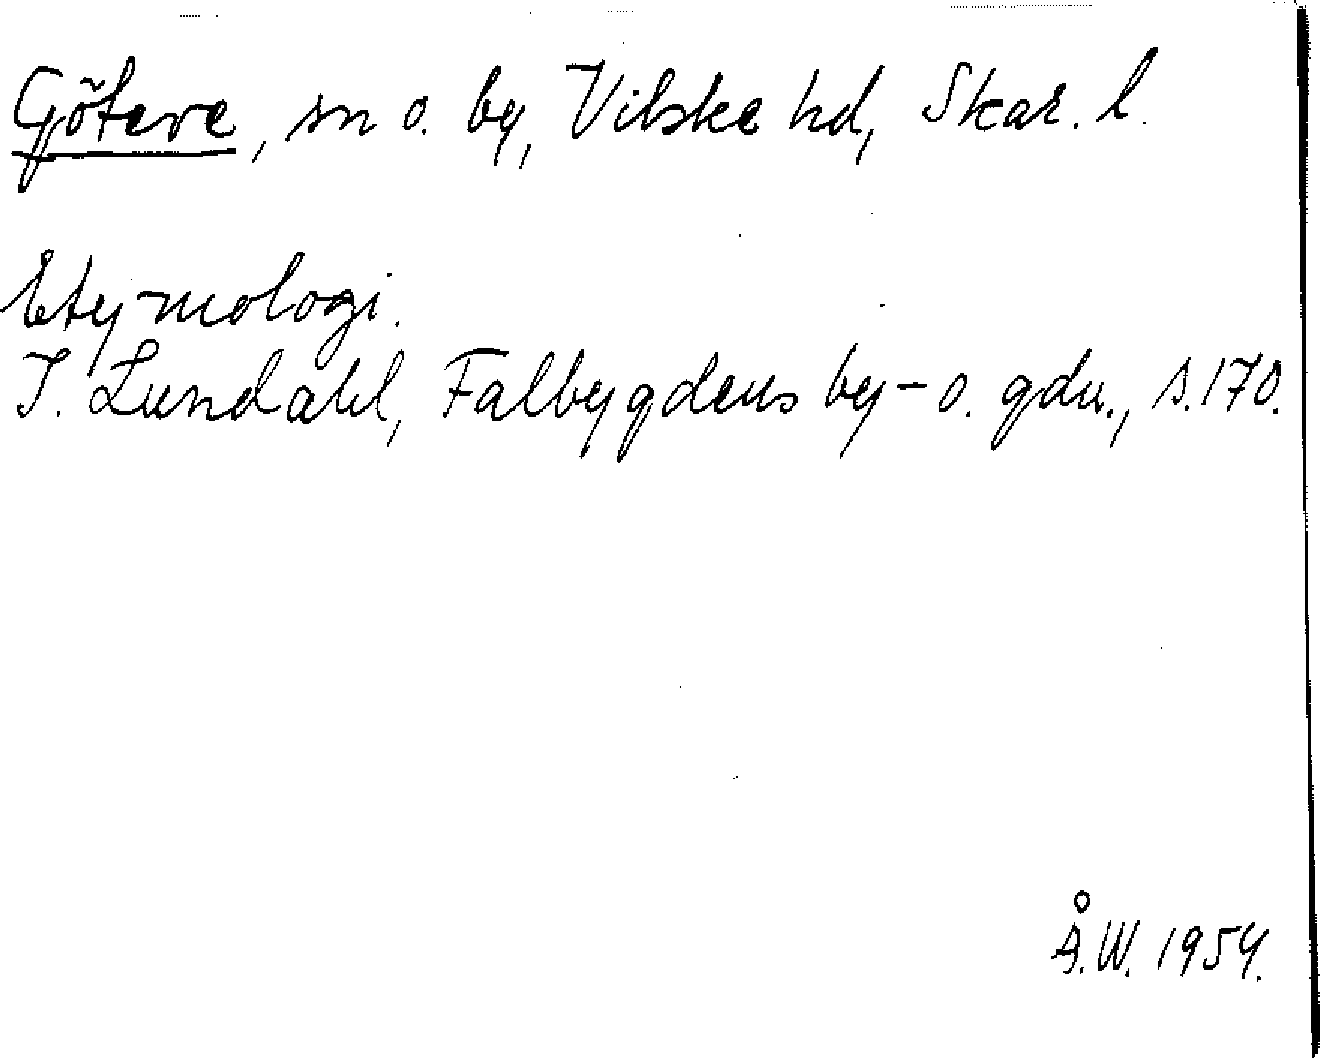 Göteve, sn o. by, Vilske hd, Skar. l.
Etymologi.
I. Lundahl, Falbygdens by- o. gdn., s. 170.
Å.W. 1954.